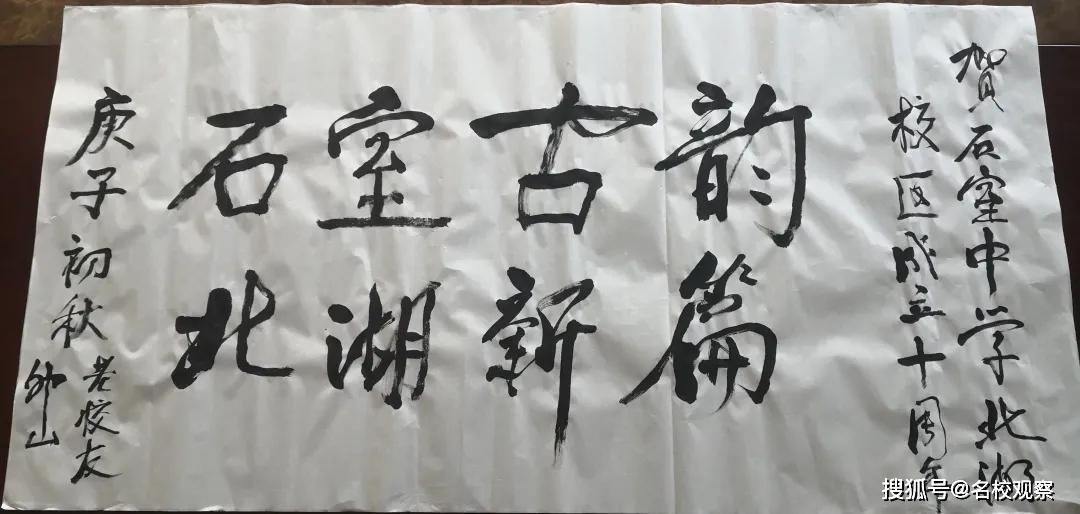 贺石室中学北湖
校区成立十周年
石室古韵
北湖新篇
庚子初秋
老校友
搜狐号@名校观察